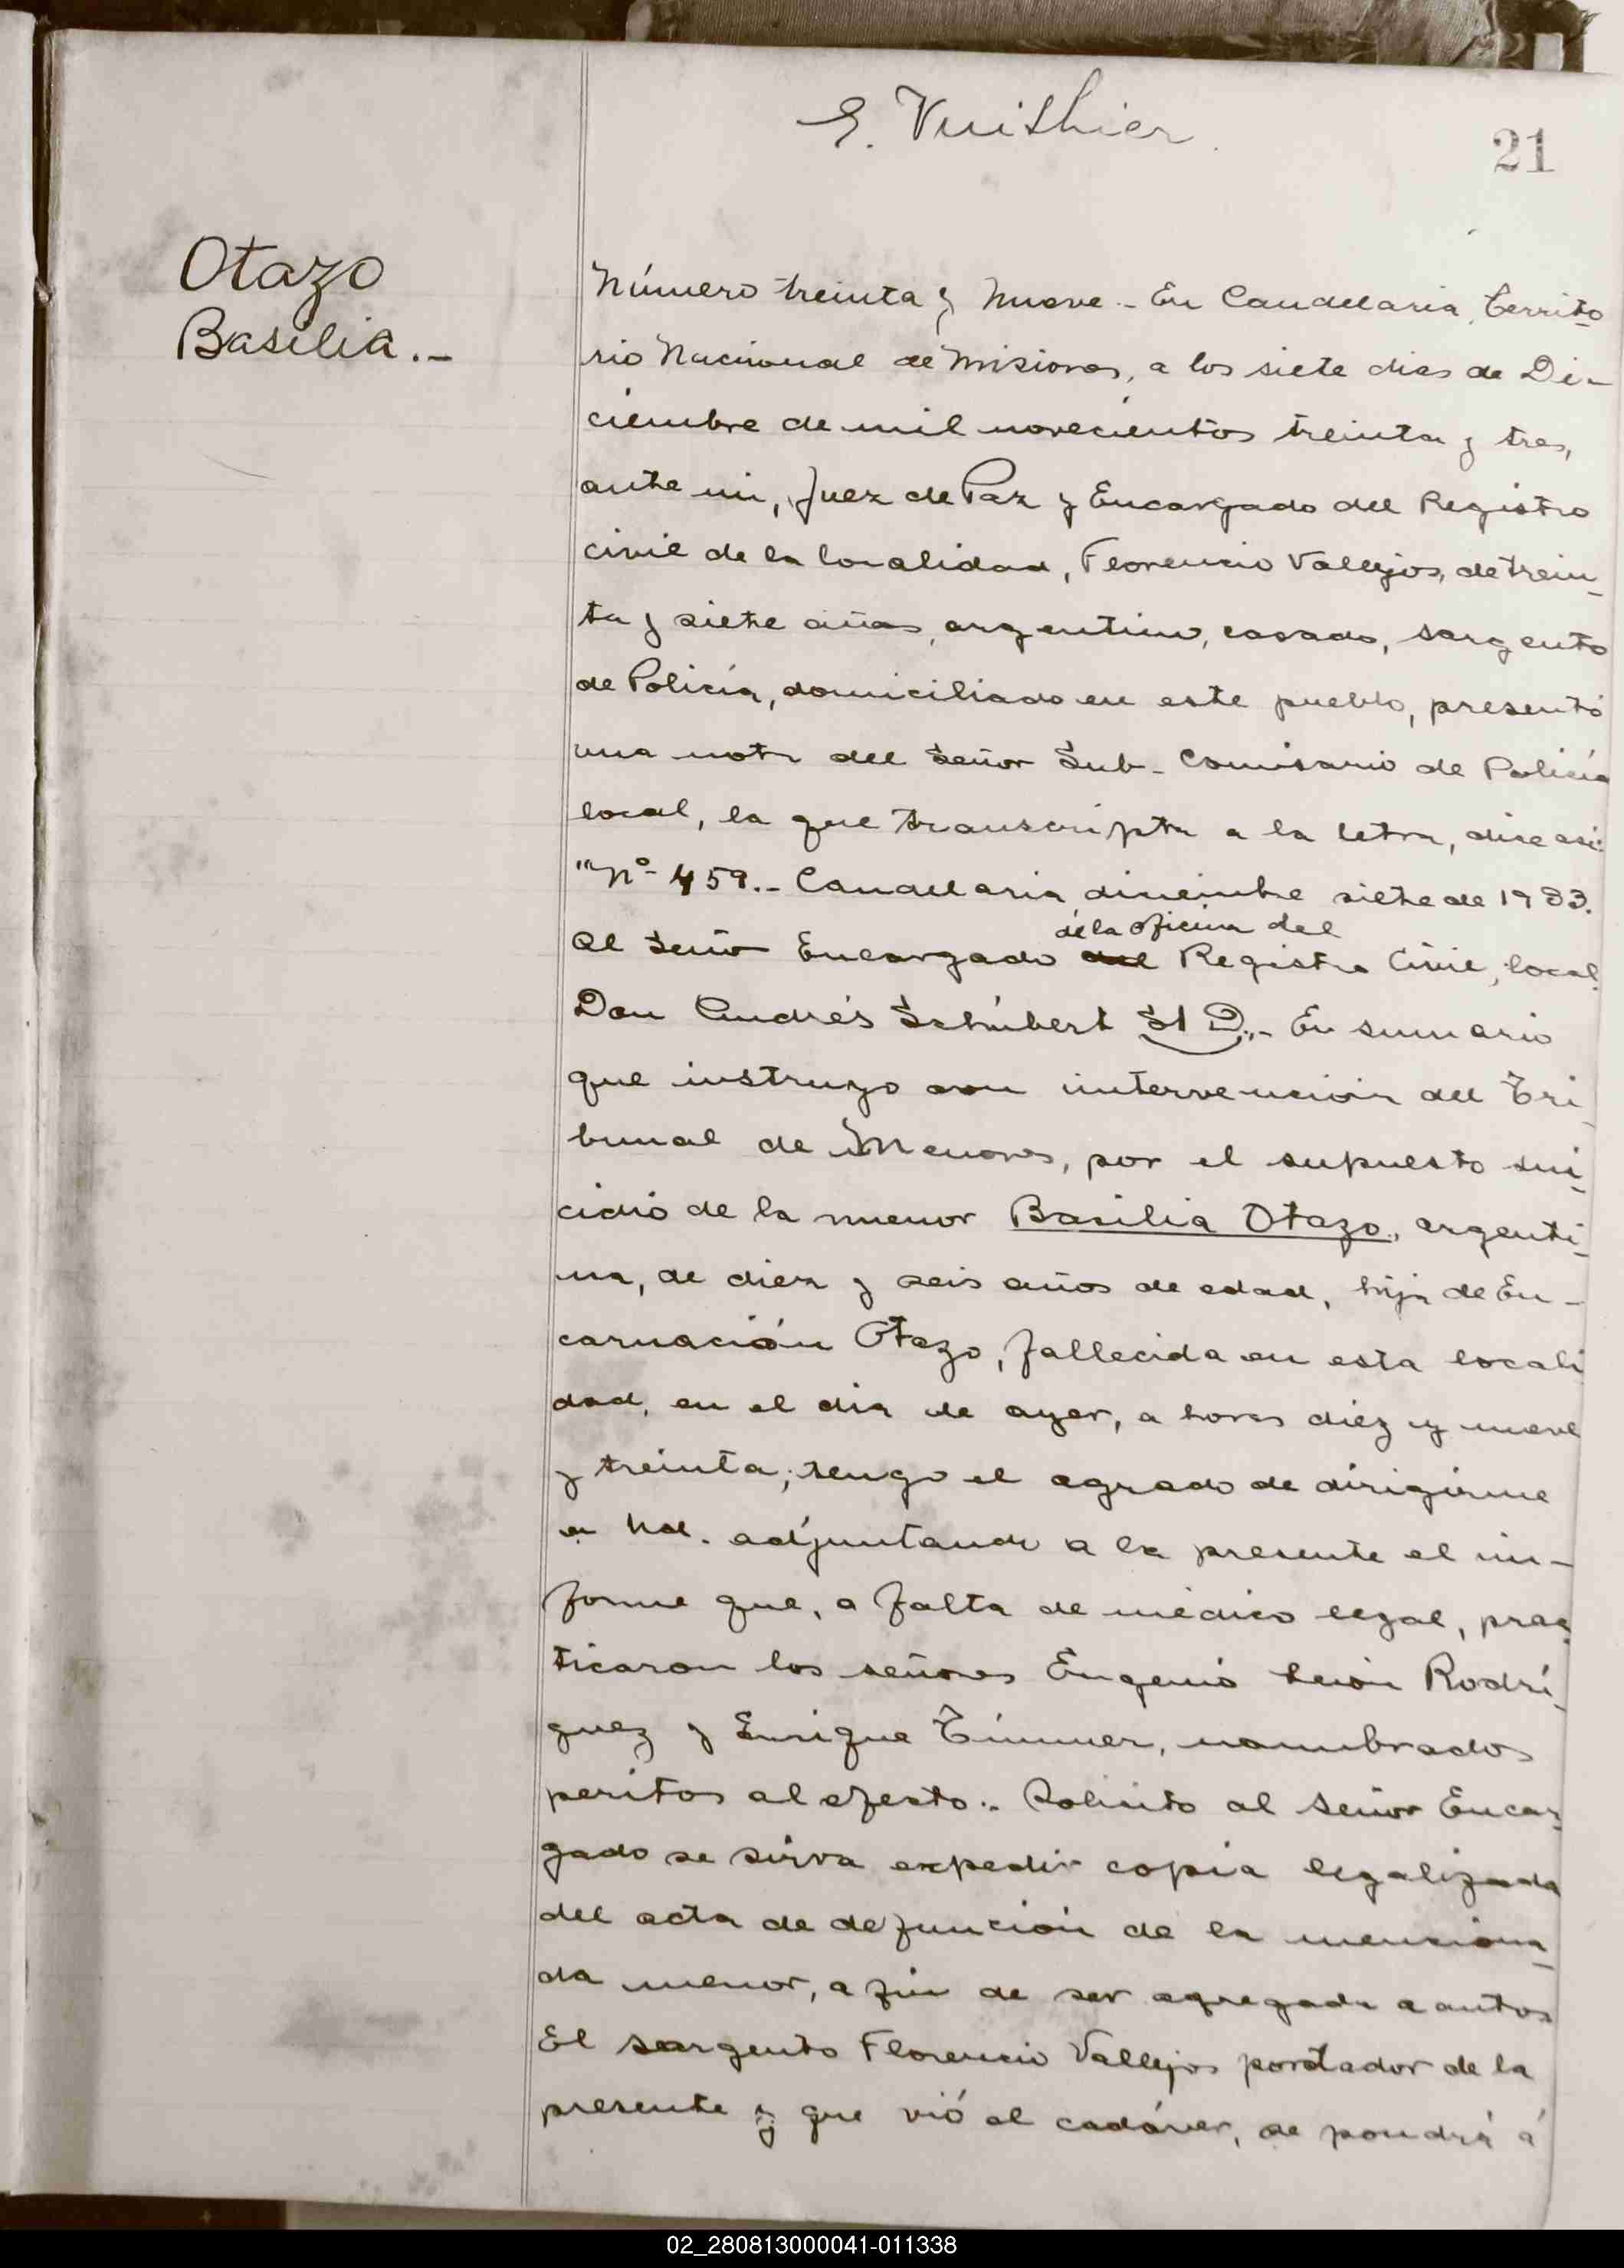 E. Vuithier
21
Otazo
Basilia.-
Número treinta y nueve.- En Candelaria, Territo
rio Nacional de Misiones, a los siete dias de Di-
ciembre de mil novecientos treinta y tres,
ante mi, Juez de Paz y Encargado del Registro
civil de la localidad, Florencio Vallejos, de trein_
ta y siete años, argentino, casado, sargento
de Policía, domiciliado en este pueblo, presentó
una nota del Señor Sub-Comisario de Policía
local, la que transcripta a la letra, dice asi:
"Nº 459.- Candelaria, diciembre siete de 1933.
de la oficina del
Al Señor Encargado del Registro Civil, local
Don Andrés Schúbert S/D.- En sumario
que instruyo con intervención del Tri_
bunal de Menores, por el supuesto sui_
cidio de la menor Basilia Otazo, argenti_
na, de diez y seis años de edad, hija de En-
carnación Otazo, fallecida en esta locali
dad, en el dia de ayer, a horas diez y nueve
y treinta; tengo el agrado de dirigirme
a Ud. adjuntando a la presente el in-
forme que, a falta de médico legal, prac_
ticaron los señores Eugenio León Rodrí_
guez y Enrique Tímmer, nombrados
peritos al efecto.- Solicito al Señor Encar_
gado se sirva expedir copia legalizada
del acta de defunción de la menciona_
da menor, a fin de ser agregada a autos
El sargento Florencio Vallejos portador de la
presente y que vió el cadáver, se pondrá á
02_280813000041-011338